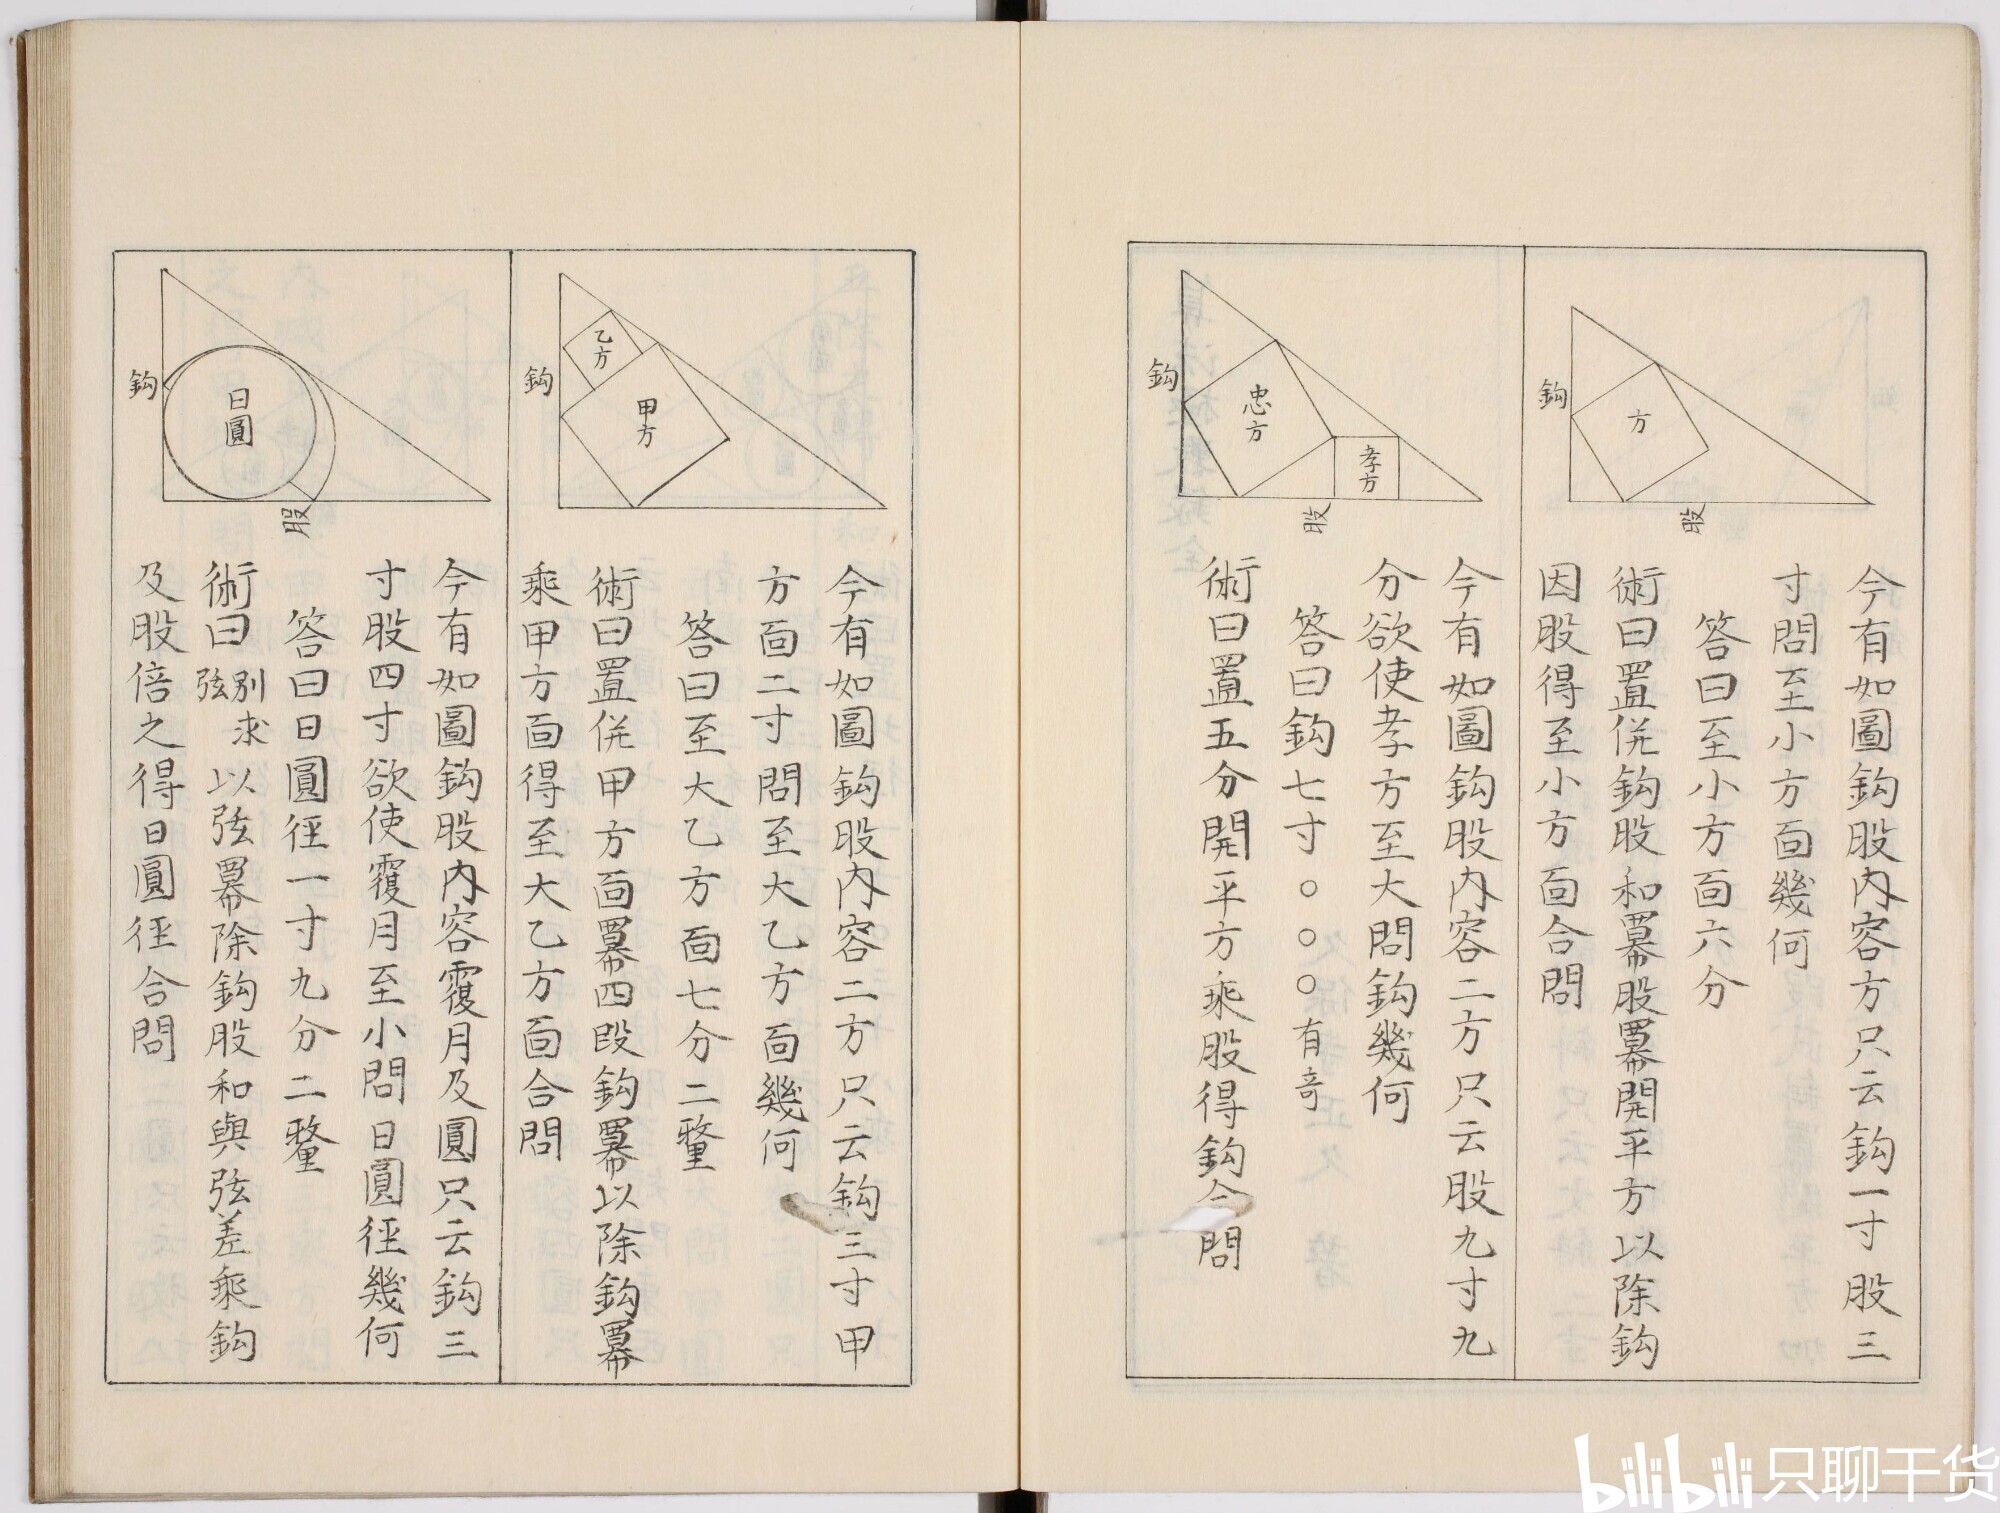 鈎
方
股
今有如圖鈎股内容方只云鈎一寸股三
寸問至小方面幾何
答曰至小方面六分
術曰置併鈎股和冪股冪開平方以除鈎
因股得至小方面合問
鈎
忠方
孝方
股
今有如圖鈎股内容二方只云股九寸九
分欲使孝方至大問鈎幾何
答曰鈎七寸○○○有奇
術曰置五分開平方乘股得鈎合問
鈎
乙方
甲方
今有如圖鈎股内容二方只云鈎三寸甲
方面二寸問至大乙方面幾何
答曰至大乙方面七分二釐
術曰置併甲方面冪四段鈎冪以除鈎冪
乘甲方面得至大乙方面合問
鈎
日圓
股
今有如圖鈎股内容覆月及圓只云鈎三
寸股四寸欲使覆月至小問日圓径幾何
答曰日圓径一寸九分二釐
術曰別求弦以弦冪除鈎股和與弦差乘鈎
及股倍之得日圓径合問
bilibili 只聊干货